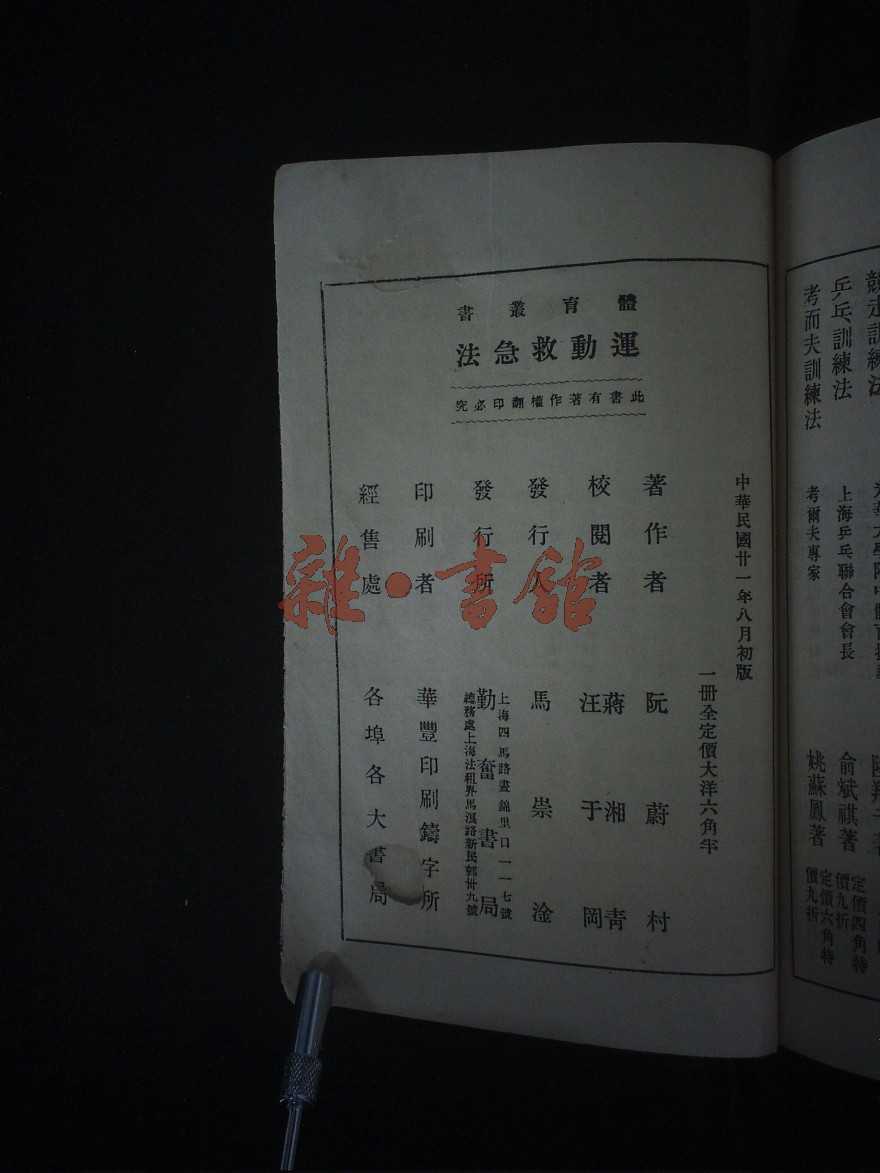 競走訓練法
乒乓訓練法
上海乒乓聯合會會長
俞斌祺著
定價四角特
價九折
考而夫訓練法
考爾夫專家
姚蘇鳳著
定價六角特
價九折
體育叢書
運動救急法
此書有著作權翻印必究
中華民國廿一年八月初版
一冊全定價大洋六角半
著作者 阮蔚村
校閱者 蔣湘青
汪于岡
發行人 馬崇淦
發行所 勤奮書局
上海四馬路晝錦里口一一七號
總務處上海法租界馬浪路新民邨卅九號
印刷者 華豐印刷鑄字所
經售處 各埠各大書局
雜·書館